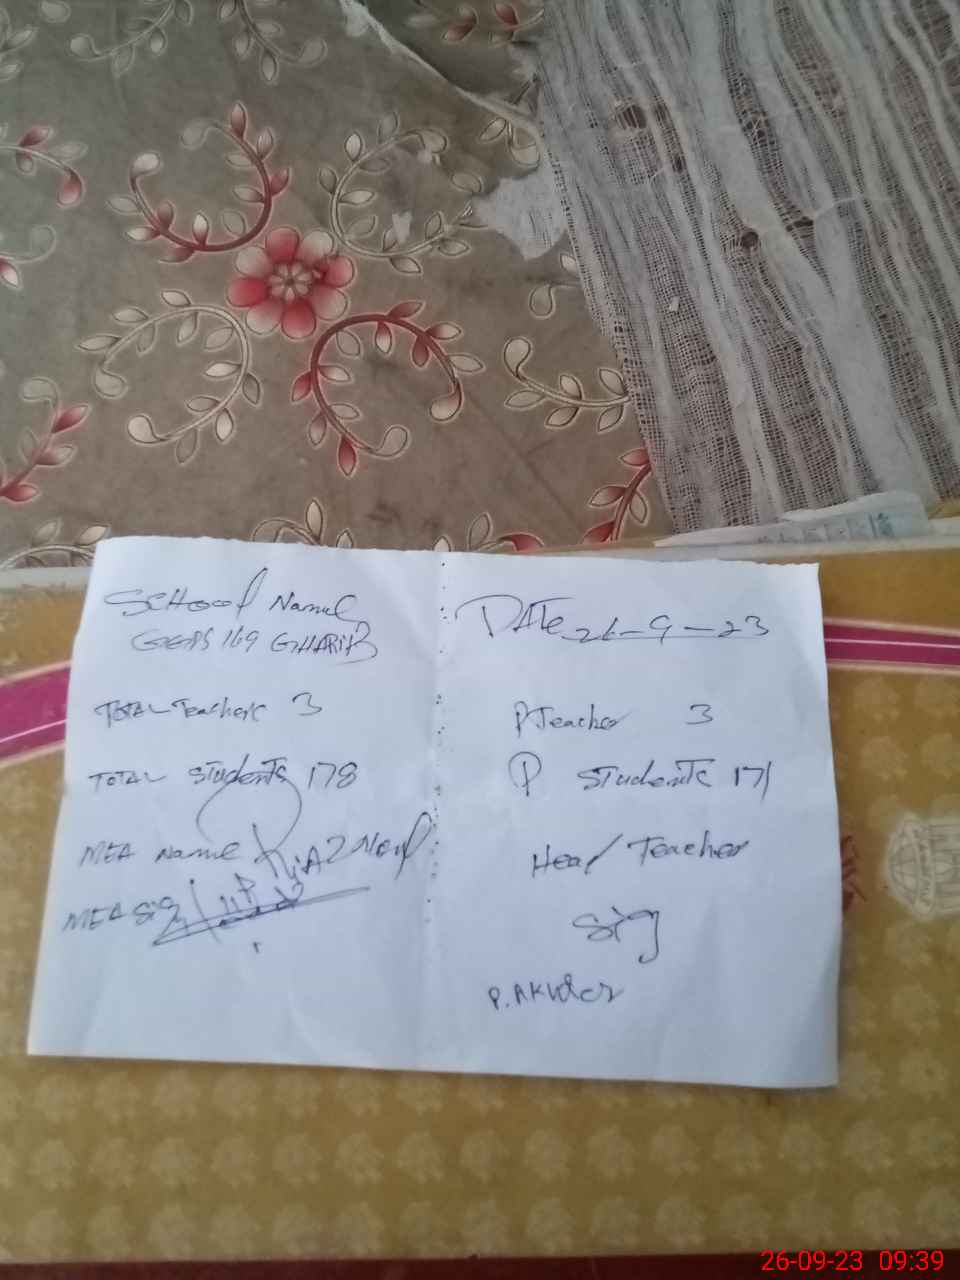 School Name
GGPS 169 GHARIB
TOTAL Teachers 3
TOTAL Students 178
MEA Name RIAZ
MEA Sig
DATE 26-9-23
P Teacher 3
P Students 171
Head Teacher
Sig
P. AKhter
26-09-23 09:39